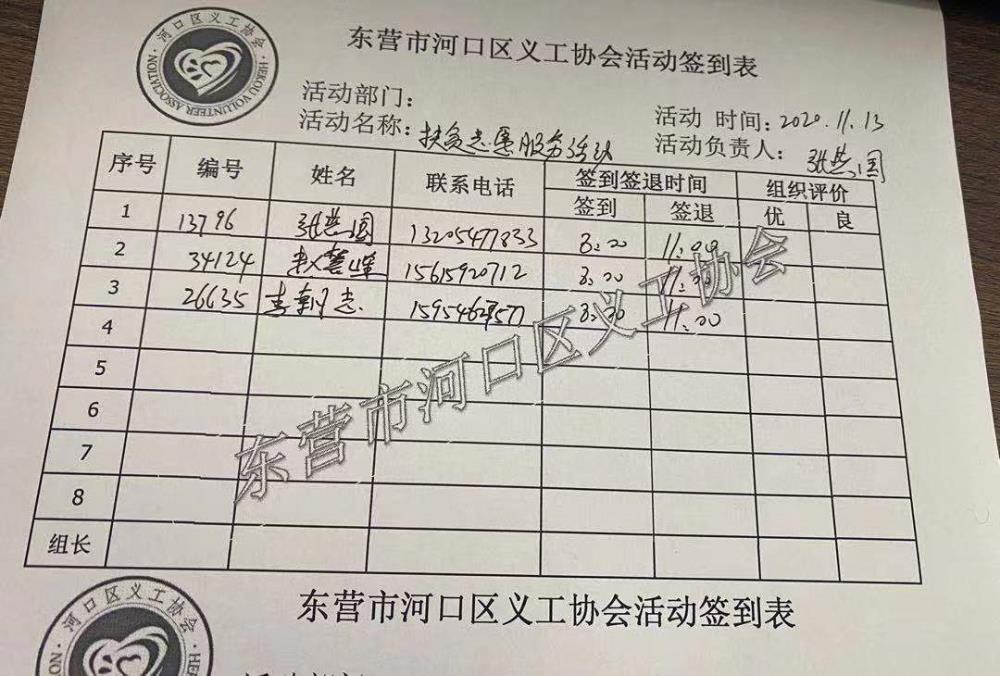 河口区义工协会
HEKOU VOLUNTEER ASSOCIATION
东营市河口区义工协会活动签到表
活动部门：
活动 时间：2020.11.13
活动名称：扶贫志愿服务活动
活动负责人：张燕国
序号 编号 姓名 联系电话 签到签退时间 组织评价
签到 签退 优 良
1 13796 张燕国 13205477833 8:00 11:00
2 34124 15615920712 8:00 11:00
3 26635 李朝志 8:00 11:00
4
5
6
7
8
组长
东营市河口区义工协会
河口区义工协会
东营市河口区义工协会活动签到表
活动部门